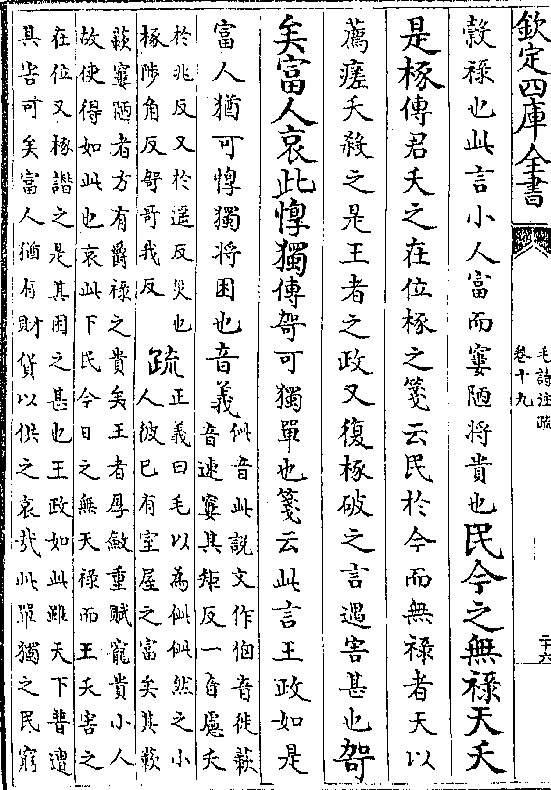 欽定四庫全書
毛詩注疏
卷十九
二十六
穀祿也此言小人富而窶陋將貴也民今之無祿天夭
是椓傳君夭之在位椓之箋云民於今而無祿者天以
薦瘥夭殺之是王者之政又復椓破之言遇害甚也哿
矣富人哀此惸獨傳哿可獨單也箋云此言王政如是
富人猶可惸獨將困也音義
佌音此說文作㑥音徙蔌
音速窶其矩反一音慮夭
於兆反又於遥反災也
椓陟角反哿哥我反
疏
正義曰毛以為佌佌然之小
人彼已有室屋之富矣其蔌
蔌窶陋者方有爵祿之貴矣王者厚斂重賦寵貴小人
故使得如此也哀此下民今日之無天祿而王夭害之
在位又椓譖之是其困之甚也王政如此雖天下普遭
其害可矣富人猶有財貨以供之哀哉此單獨之民窮